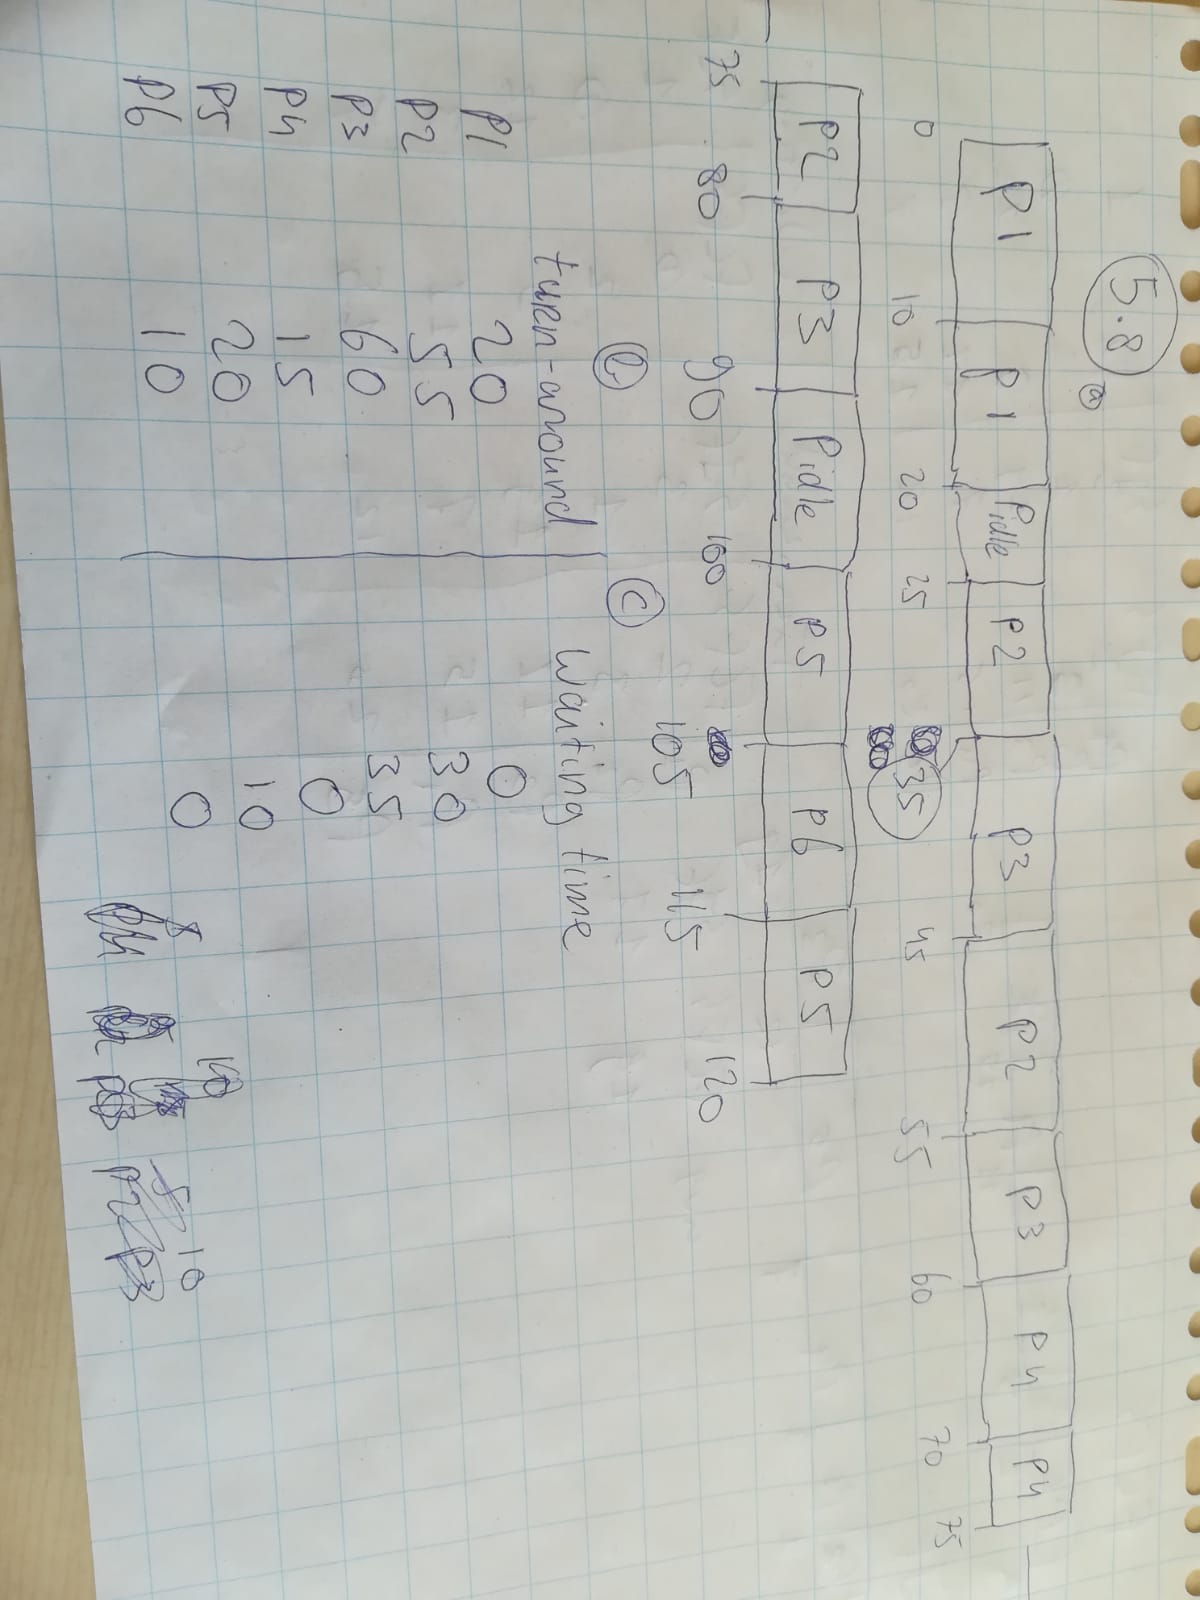 5.8 a
P1 P1 Pidle P2 P3 P2 P3 P4 P4
0 10 20 25 35 45 55 60 70 75
P2 P3 Pidle P5 P6 P5
75 80 90 100 105 115 120
b c
turn-around waiting time
P1 20 0
P2 55 30
P3 60 35
P4 15 0
P5 20 10
P6 10 0